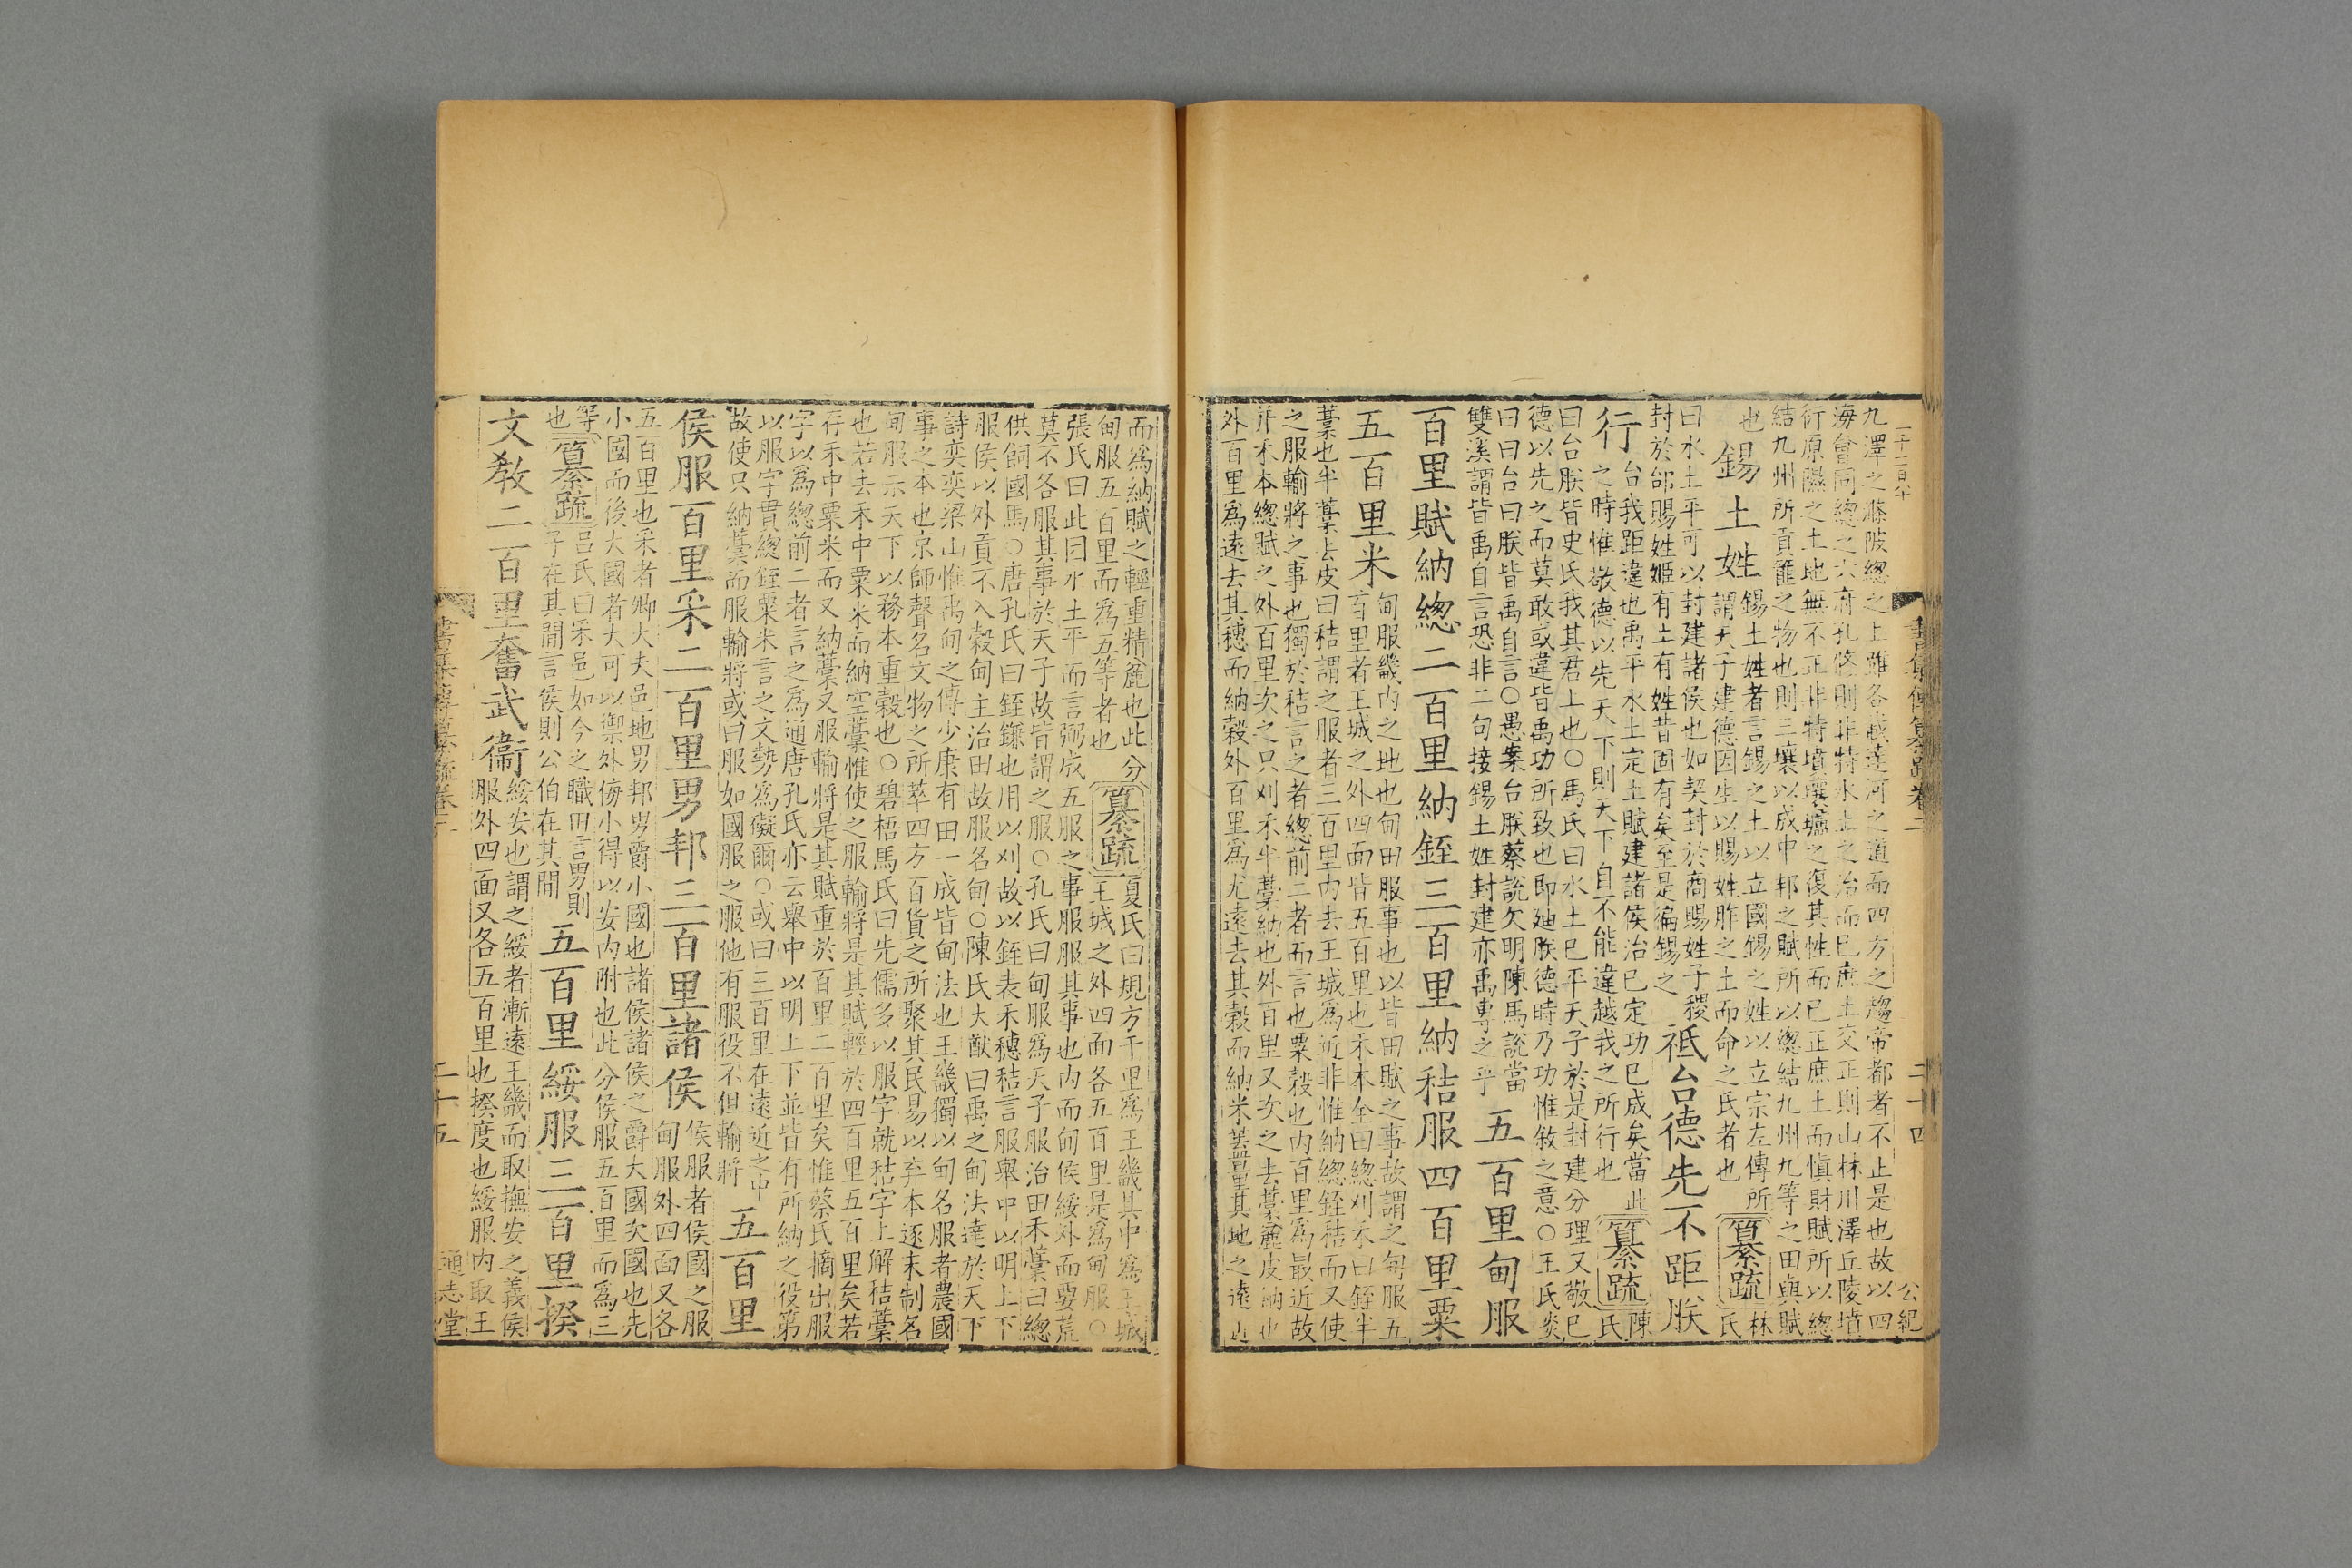 九澤之滌陂總之上雖各載達河之道而四方之趨帝都者不止是也故以四
海會同總之六府孔修則非特水土之治而已庶土交正則山林川澤丘陵墳
衍原隰之土地無不正非特墳壤壚之復其性而已正庶土而慎財賦所以總
結九州所貢篚之物也則三壤以成中邦之賦所以總結九州九等之田與賦
也
錫土姓
錫土姓者言錫之土以立國錫之姓以立宗左傳所
謂天子建德因生以賜姓胙之土而命之氏者也
纂疏
林
氏
曰水土平可以封建諸侯也如契封於商賜姓子稷
封於邰賜姓姬有土有姓昔固有矣至是徧錫之
祗台德先不距朕
行
台我距違也禹平水土定土賦建諸侯治已定功已成矣當此
之時惟敬德以先天下則天下自不能違越我之所行也
纂疏
陳
氏
曰台朕皆史氏我其君上也○馬氏曰水土已平天子於是封建分理又敬已
德以先之而莫敢或違皆禹功所致也即廸朕德時乃功惟敘之意○王氏炎
曰曰台曰朕皆禹自言○愚案台朕蔡說欠明陳馬說當
雙溪謂皆禹自言恐非二句接錫土姓封建亦禹專之乎
五百里甸服
百里賦納總二百里納銍三百里納秸服四百里粟
五百里米
甸服畿內之地也甸田服事也以皆田賦之事故謂之甸服五
百里者王城之外四面皆五百里也禾本全曰總刈禾曰銍半
藁也半藁去皮曰秸謂之服者三百里內去王城為近非惟納總銍秸而又使
之服輸將之事也獨於秸言之者總前二者而言也粟穀也內百里爲最近故
并禾本總賦之外百里次之只刈禾半藁納也外百里又次之去藁麤皮納也
外百里爲遠去其穗而納穀外百里爲尤遠去其穀而納米蓋量其地之遠近
而爲納賦之輕重精麄也此分
甸服五百里而爲五等者也
纂疏
夏氏曰規方千里爲王畿其中爲王城
王城之外四面各五百里是爲甸服○
張氏曰此因水土平而言弼成五服之事服服其事也內而甸侯綏外而要荒
莫不各服其事於天子故皆謂之服○孔氏曰甸服爲天子服治田禾藁曰總
供飼國馬○唐孔氏曰銍鎌也用以刈故以銍表禾穗秸言服舉中以明上下
服侯以外貢不入穀甸主治田故服名甸○陳氏大猷曰禹之甸法達於天下
詩奕奕梁山惟禹甸之傳少康有田一成皆甸法也王畿獨以甸名服者農國
事之本也京師聲名文物之所萃四方百貨之所聚其民易以弃本逐末制名
甸服示天下以務本重穀也○碧梧馬氏曰先儒多以服字就秸字上解秸藁
也若去禾中粟米而納空藁惟使之服輸將是其賦輕於四百里五百里矣若
存禾中粟米而又納藁又服輸將是其賦重於百里二百里矣惟蔡氏摘出服
字以爲總前二者言之爲通唐孔氏亦云舉中以明上下並皆有所納之役第
以服字貫總銍粟米言之文勢爲礙爾○或曰三百里在遠近之中
故使只納藁而服輸將或曰服如國服之服他有服役不但輸將
五百里
侯服百里采二百里男邦三百里諸侯
侯服者侯國之服
甸服外四面又各
五百里也采者卿大夫邑地男邦男爵小國也諸侯諸侯之爵大國次國也先
小國而後大國者大可以禦外侮小得以安內附也此分侯服五百里而爲三
等
也
纂疏
呂氏曰采邑如今之職田言男則
子在其閒言侯則公伯在其閒
五百里綏服三百里揆
文教二百里奮武衞
綏安也謂之綏者漸遠王畿而取撫安之義侯
服外四面又各五百里也揆度也綏服內取王
書集傳纂疏卷二
二十四
公紀
二十五
通志堂